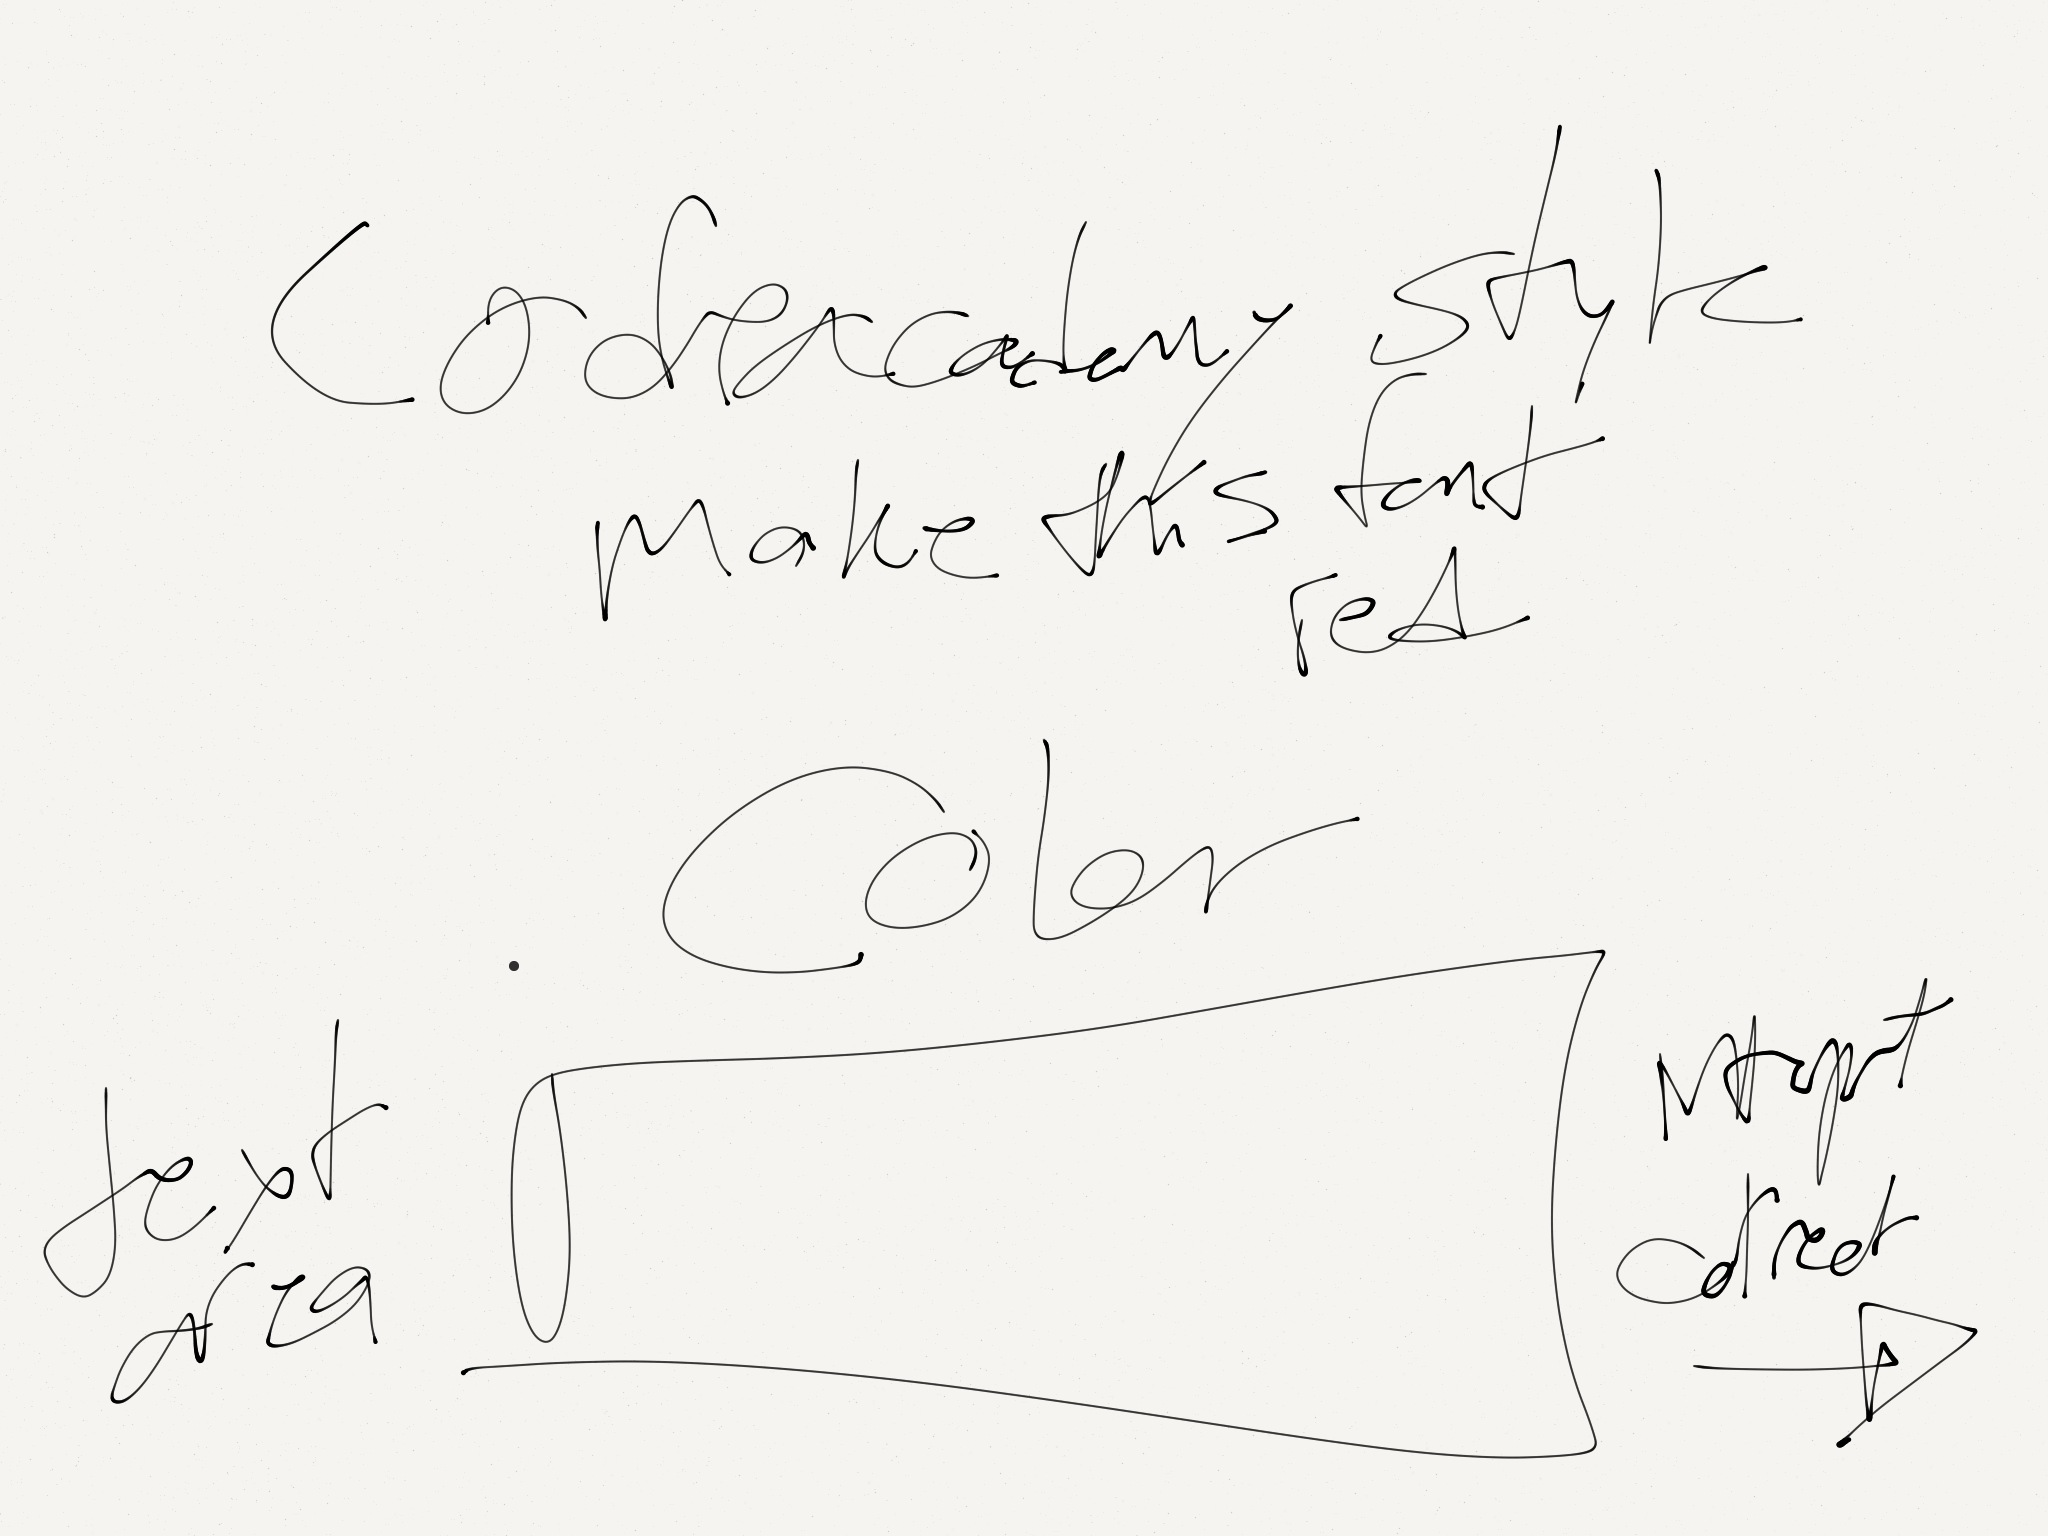 Codecademy style
Make this font
red
Color
text
area